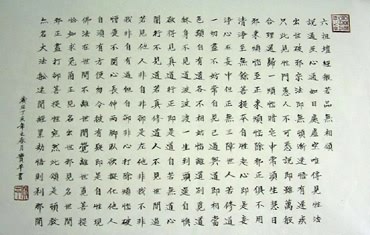 六祖壇經般若品無相頌
說通及心通如日處虛空唯傳見性法
出世破邪宗法即無頓漸迷悟有遲疾
只此見性門愚人不可悉說即雖萬般
合理還歸一煩惱暗宅中常須生慧日
邪來煩惱至正來煩惱除邪正俱不用
清淨至無餘菩提本自性起心即是妄
淨心在妄中但正無三障世人若修道
一切盡不妨常自見己過與道即相當
色類自有道各不相妨惱離道別覓道
終身不見道波波度一生到頭還自懊
欲得見真道行正即是道自若無道心
闇行不見道若真修道人不見世間過
若見他人非自非卻是左他非我不非
我非自有過但自卻非心打除煩惱破
憎愛不關心長伸兩腳臥欲擬化他人
自須有方便勿令彼有疑即是自性現
佛法在世間不離世間覺離世覓菩提
恰如求兔角正見名出世邪見名世間
邪正盡打卻菩提性宛然此頌是頓教
亦名大法船迷聞經累劫悟則剎那間
丁亥年 月 書